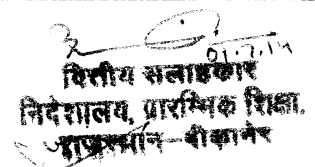 01.7.14
वित्तीय सलाहकार
निदेशालय, प्रारम्भिक शिक्षा,
राजस्थान-बीकानेर